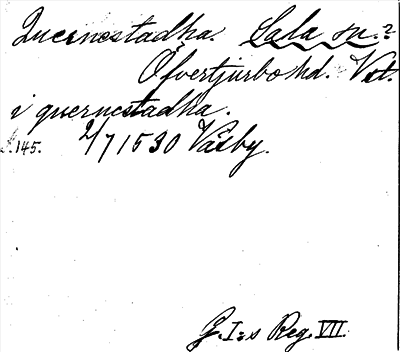 Quernestadha. Sala sn.?
Öfvertjurbo hd. Vst.
i quernestadha.
s. 145. 2/7 1530 Väsby.
G. I:s Reg. VII.